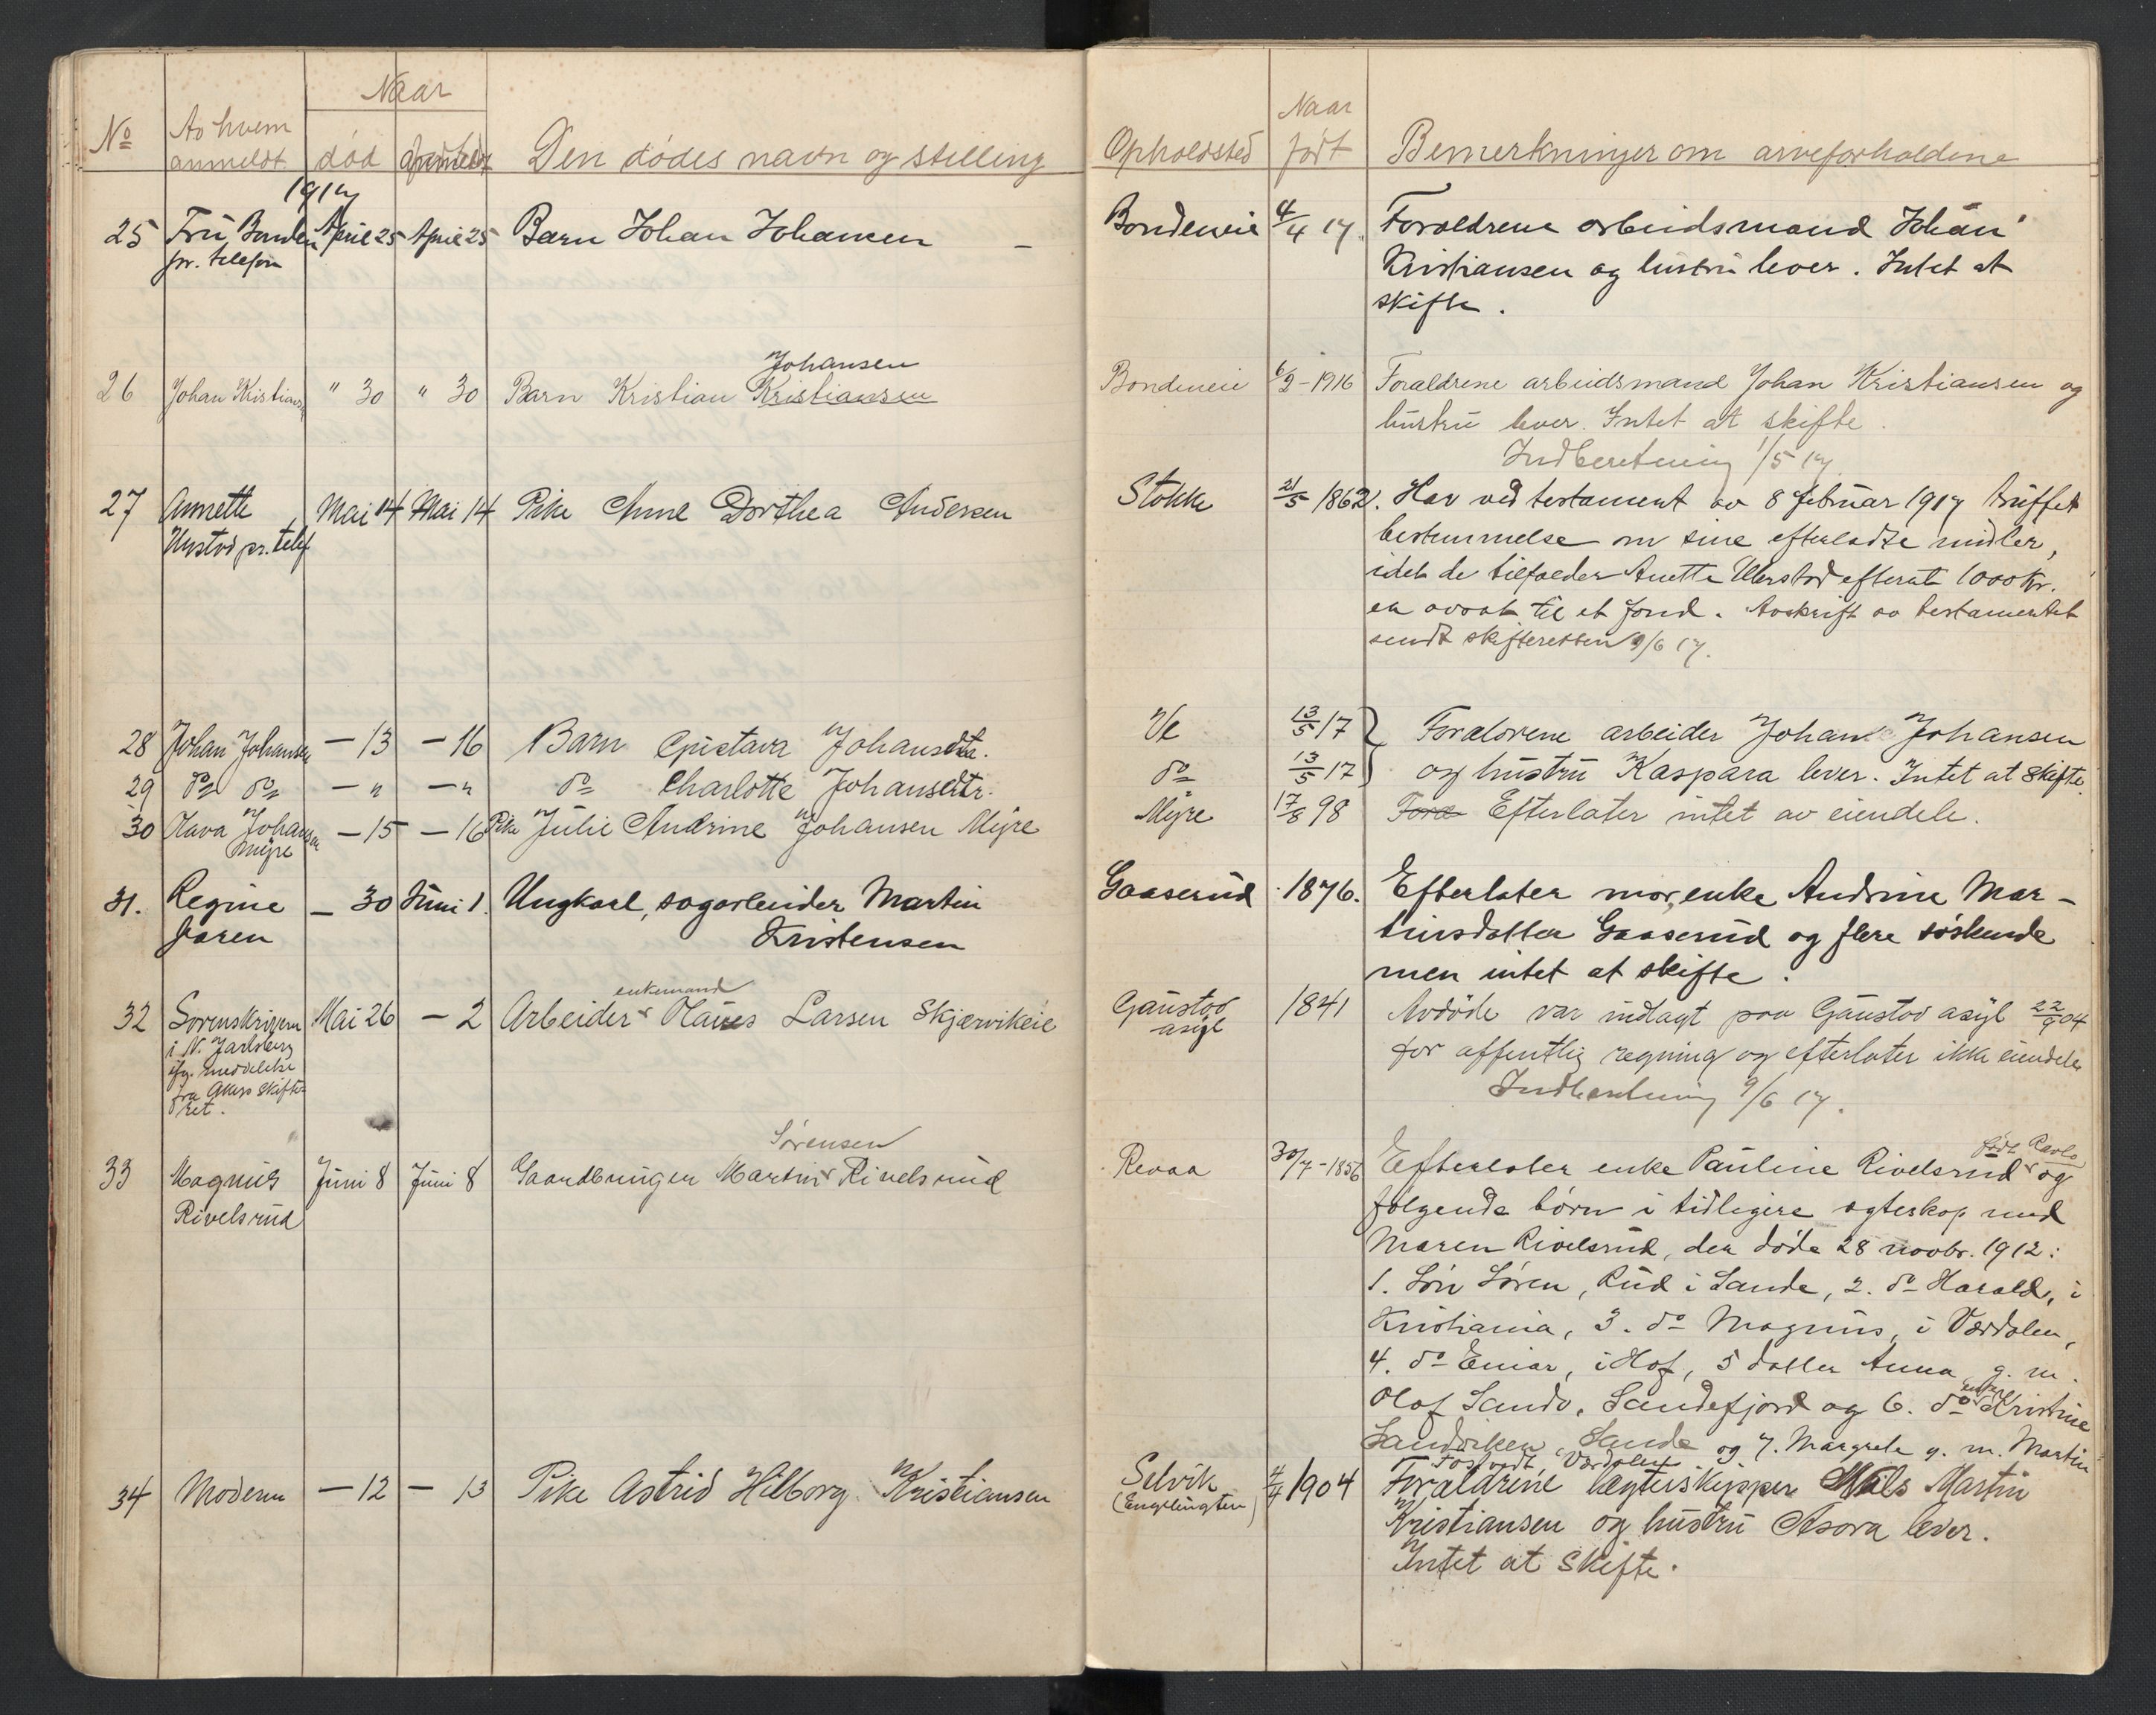 Naar
No Av hvem anmeldt død anmeldt Den dødes navn og stilling Opholdsted Naar født Bemerkninger om arveforholdene
1917
25 Fru Bonden April 25 April 25 Barn Johan Johansen — Bondeneie 4/4 17. Forældrene arbeidsmand Johan
pr. telefon Kristiansen og hustru lever. Intet at
skifte.
Johansen
26 Johan Kristiansen " 30 " 30 Barn Kristian Kristiansen Bondeneie 6/2-1916 Forældrene arbeidsmand Johan Kristiansen og
hustru lever. Intet at skifte.
Indberetning 1/5 17.
27 Annette Mai 14 Mai 14 Pike Anne Dorthea Andersen Stokke 21/5 1862. Har ved testament av 8 februar 1917 truffet
pr. telef bestemmelse om sine efterladte midler,
idet de tilfalder Anette efterat 1000 kr.
er avsat til et fond. Avskrift av testamentet
sendt skifteretten 9/6 17.
28 Johan Johansen — 13 — 16 Barn Gustava Johansdtr. Ve 13/5 17 } Forældrene arbeider Johan Johansen
29 do do — " — " do Charlotte Johansdtr. do 13/5 17 } og hustru Kaspara lever. Intet at skifte.
30 Olava Johansen — 15 — 16 Pike Julie Andrine Johansen Myre Myre 17/8 98 Foræ Efterlater intet av eiendele.
Myre
31. Regine — 30 Juni 1. Ungkarl, sagarbeider Martin Gaaserud 1876. Efterlater mor, enke Andrine Mar-
Faren Kristensen tinsdatter Gaaserud og flere søskende
men intet at skifte.
enkemand
32 Sorenskriveren Mai 26 — 2 Arbeider Olaves Larsen Skjærvikeie Gaustad 1841 Avdøde var indlagt paa Gaustad asyl 22/9 04
i N. Jarlsberg asyl for offentlig regning og efterlater ikke eiendele
ifg. meddelelse Indberetning 9/6 17.
fra Akers skifte-
ret.
Sørensen født Revlo
33 Magnus Juni 8 Juni 8 Gaardbruger Martin Rivelsrud Revaa 30/7-1856 Efterlater enke Pauline Rivelsrud og
Rivelsrud følgende børn i tidligere egteskap med
Maren Rivelsrud, der døde 28 novbr. 1912:
1. Søn Søren, Rud i Sande, 2. do Harald, i
Kristiania, 3. do Magnus, i Værdalen,
4. do Einar, i Hof, 5 datter Anna g. m.
Olaf Sando, Sandefjord og 6. do Kristine
Sandviken, Sande og 7. Margrete g. m. Martin
Værdalen.
34 Moderen — 12 — 13 Pike Astrid Hilborg Kristiansen Selvik 4/4 1904 Forældrene lægterskipper Nils Martin
Kristiansen og hustru Asora lever.
Intet at skifte.